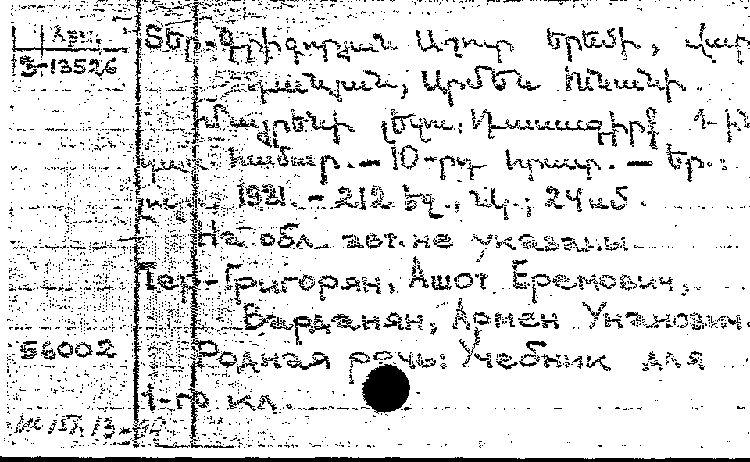 Տեր-Գրիգորյան Աշոտ Երեմի, Վար
դանյան, Արմեն Ունանի.
Մայրենի լեզու: Դասագիրք 1-ին
դաս. համար. — 10-րդ հրատ. — Եր.:
1981. - 212 էջ., նկ.; 24 սմ.
На обл. авт. не указаны
Тер-Григорян, Ашот Еремович,
Варданян, Армен Унанович.
Родная речь: Учебник для
1-го кл.
З-13526
56002